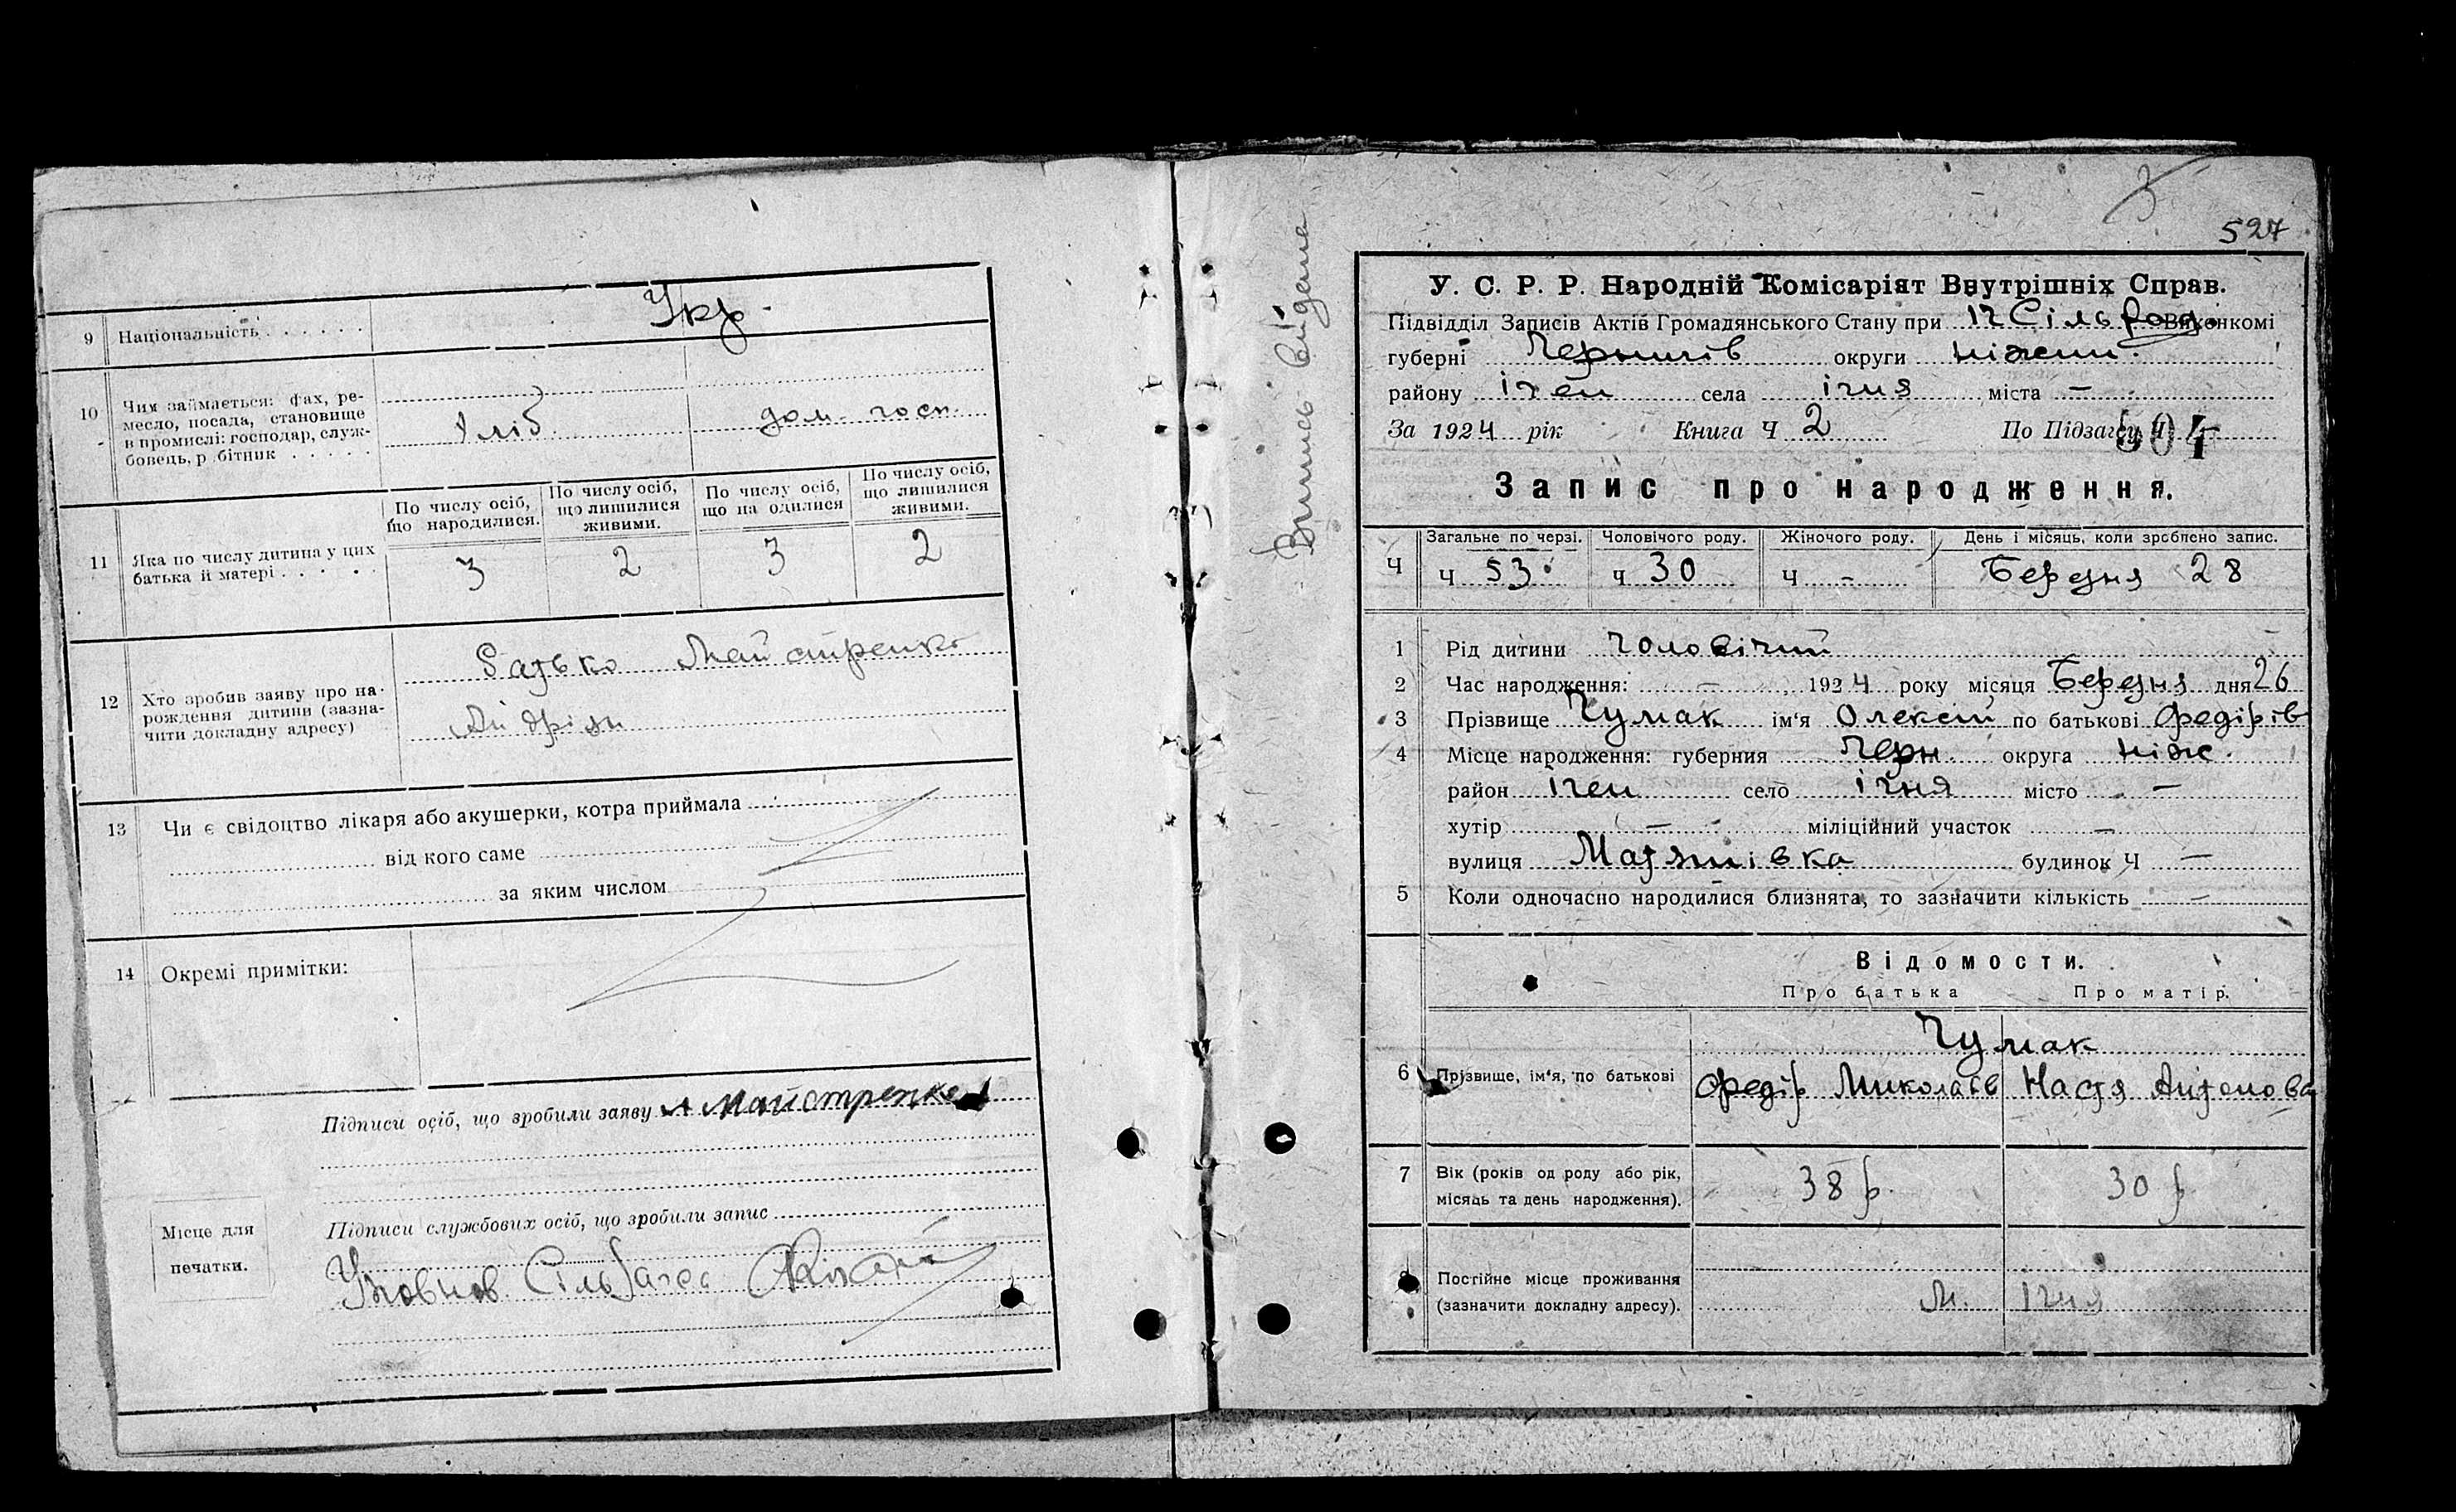 9 Національність . . . . . . Укр.
10 Чим займається: фах, ре-
месло, посада, становище
в промислі: господар, служ-
бовець, р бітник . . . . .
хліб дом. госп.
11 Яка по числу дитина у цих
батька й матері . . . . .
По числу осіб,
що народилися.
По числу осіб,
що лишилися
живими.
По числу осіб,
що на одилися
По числу осіб,
що лишилися
живими.
3 2 3 2
12 Хто зробив заяву про на-
рождення дитини (зазна-
чити докладну адресу)
Батько Майстренко
Андріян
13 Чи є свідоцтво лікаря або акушерки, котра приймала
від кого саме
за яким числом
14 Окремі примітки:
Підписи осіб, що зробили заяву А Майстренко
Підписи службових осіб, що зробили запис
Уповнов. Сільзагса
Місце для
печатки.
Випись видана
3
527
У. С. Р. Р. Народній Комісаріят Внутрішніх Справ.
Підвідділ Записів Актів Громадянського Стану при Іч Сільрад. Виконкомі
губерні Чернигів округи ніжин.
району ічен села ічня міста –
За 1924 рік Книга Ч 2 По Підзагсу Ч 504
Запис про народження.
Ч
Загальне по черзі. Чоловічого роду. Жіночого роду. День і місяць, коли зроблено запис.
Ч 53 Ч 30 Ч - Березня 28
1 Рід дитини чоловічий
2 Час народження: – 1924 року місяця Березня дня 26
3 Прізвище Чумак ім'я Олексій по батькові Федірів
4 Місце народження: губерния Черн. округа ніж.
район ічен село ічня місто –
хутір – міліційний участок –
вулиця Матяшівка будинок Ч –
5 Коли одночасно народилися близнята, то зазначити кількість –
Відомости.
Про батька Про матір.
Чумак
6 Прізвище, ім'я, по батькові Федір Миколаїв Настя Антонова
7 Вік (років од роду або рік,
місяць та день народження).
38 р. 30 р
8 Постійне місце проживання
(зазначити докладну адресу).
м. Ічня